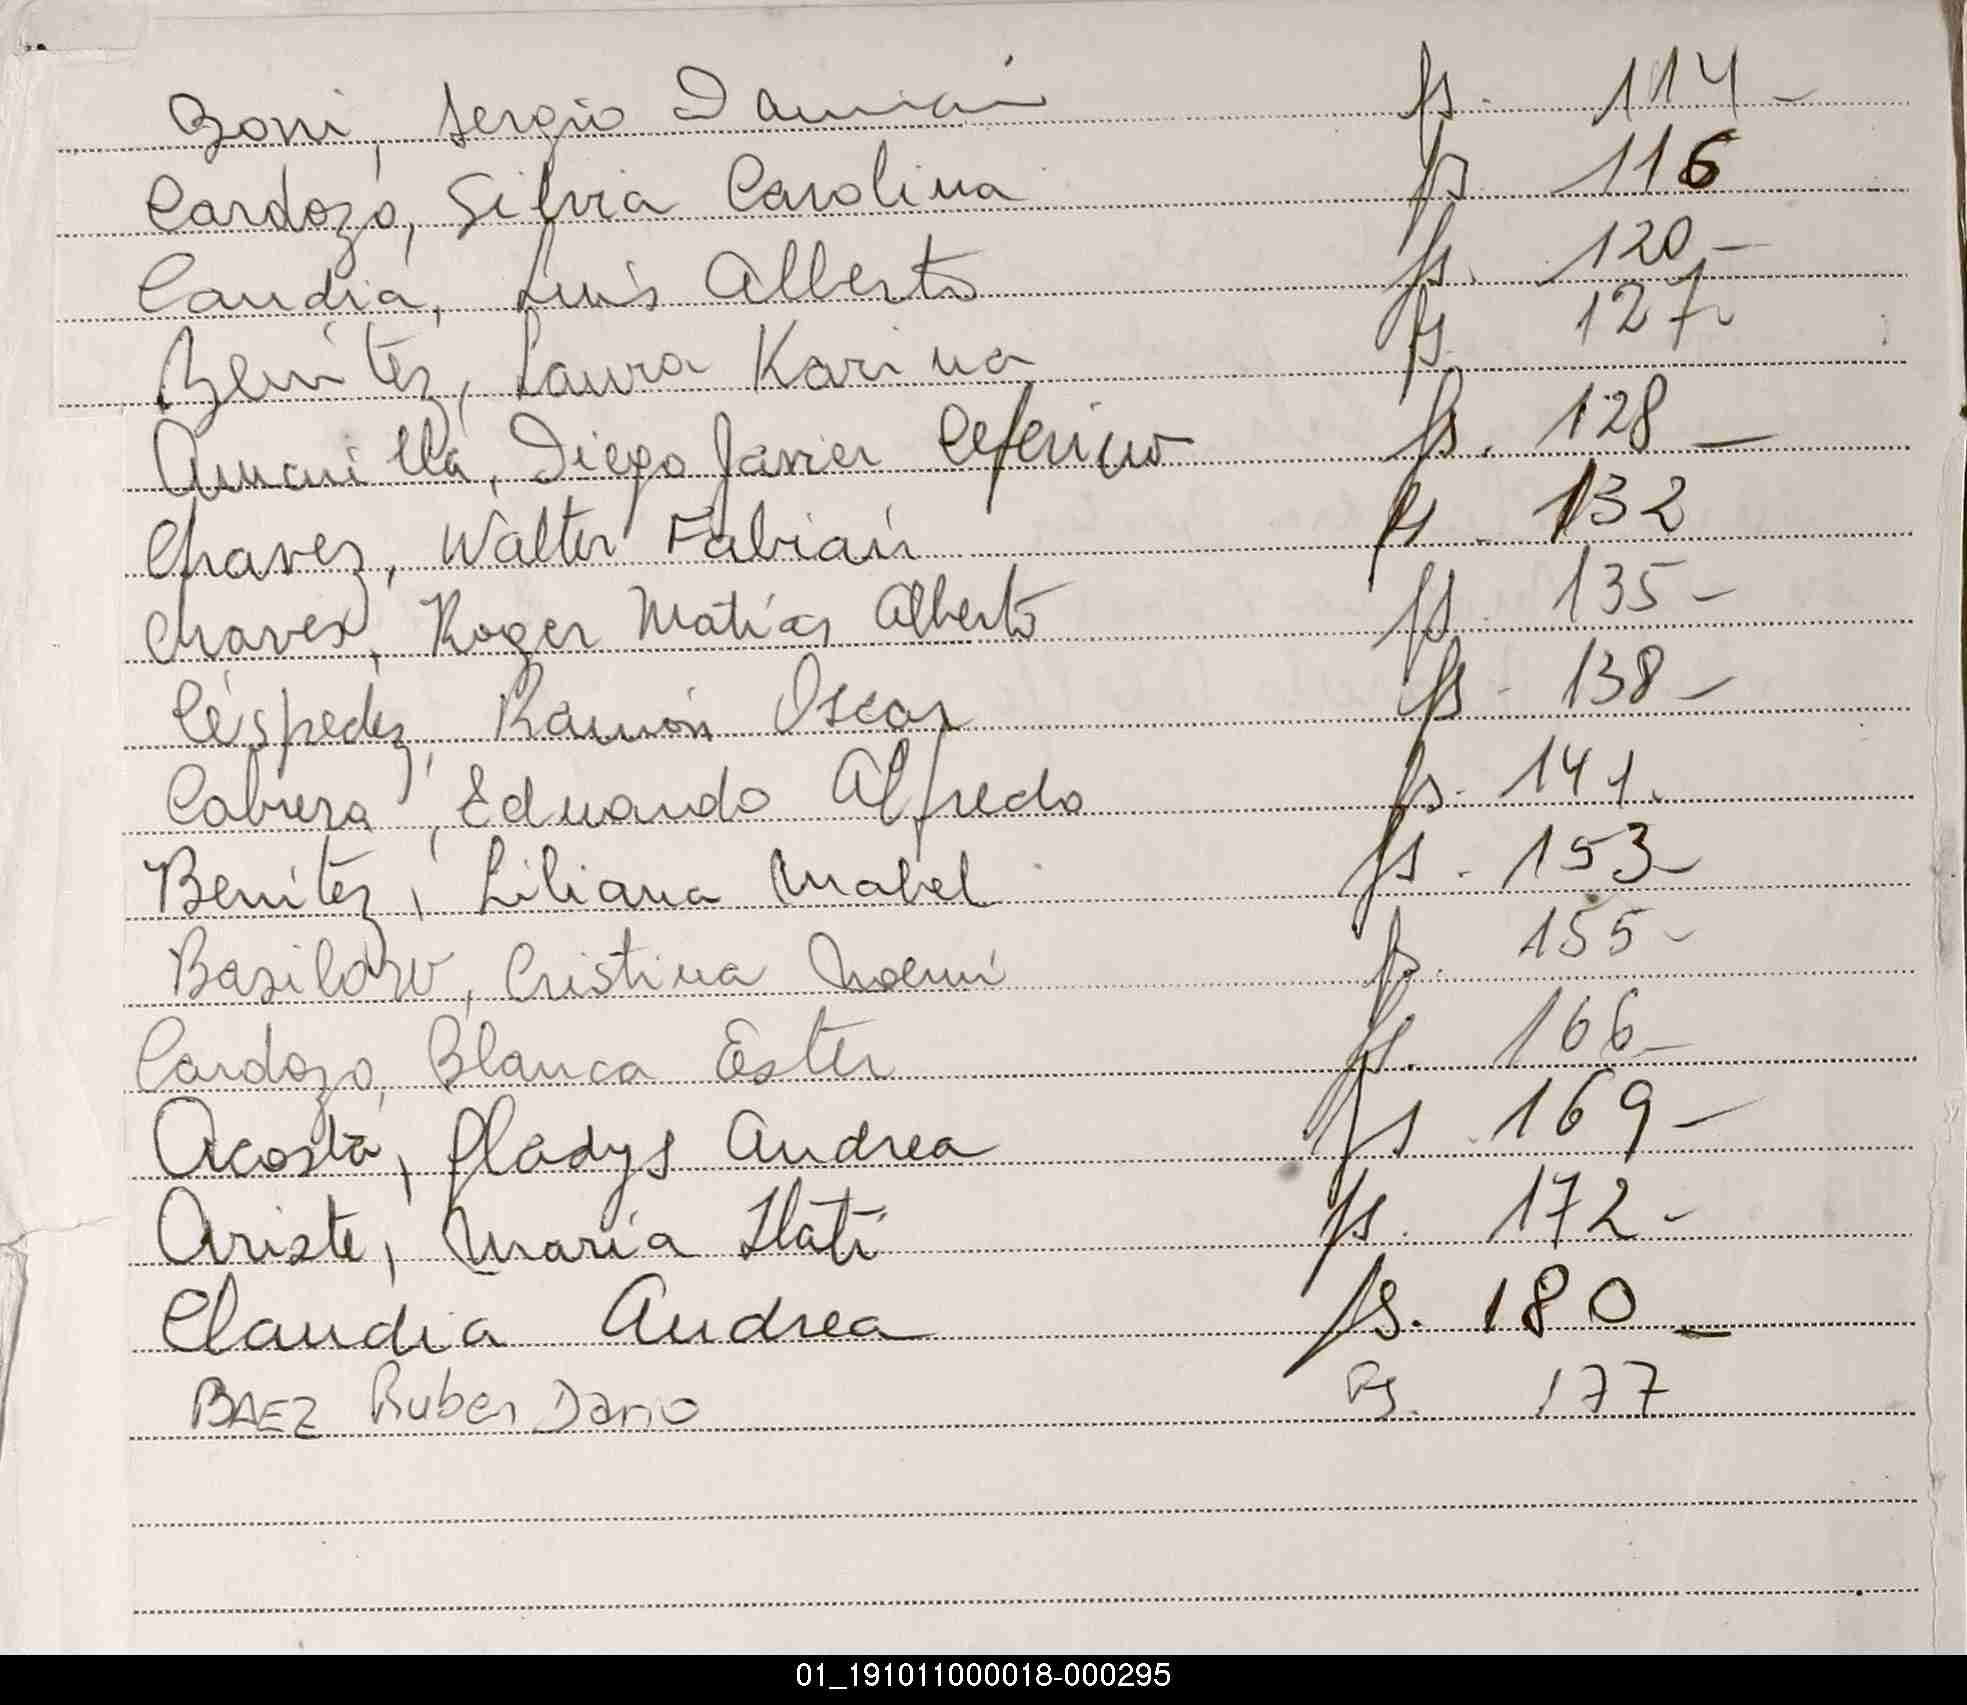 Boni, Sergio Damián fs. 114-
Cardozo, Silvia Carolina fs. 116
Candia, Luis Alberto fs. 120-
Benítez, Laura Karina fs. 127-
Amarilla, Diego Javier Ceferino fs. 128-
Chavez, Walter Fabián fs. 132
Chavez, Roger Matías Alberto fs. 135-
Céspedez, Ramón Oscar fs. 138-
Cabrera, Eduardo Alfredo fs. 141.
Benítez, Liliana Mabel fs. 153-
Cristina Noemí fs. 155-
Cardozo, Blanca Ester fs. 166-
Acosta, Gladys Andrea fs. 169-
María Itatí fs. 172-
Claudia Andrea fs. 180-
BAEZ Ruben Dario Fs. 177
01_191011000018-000295